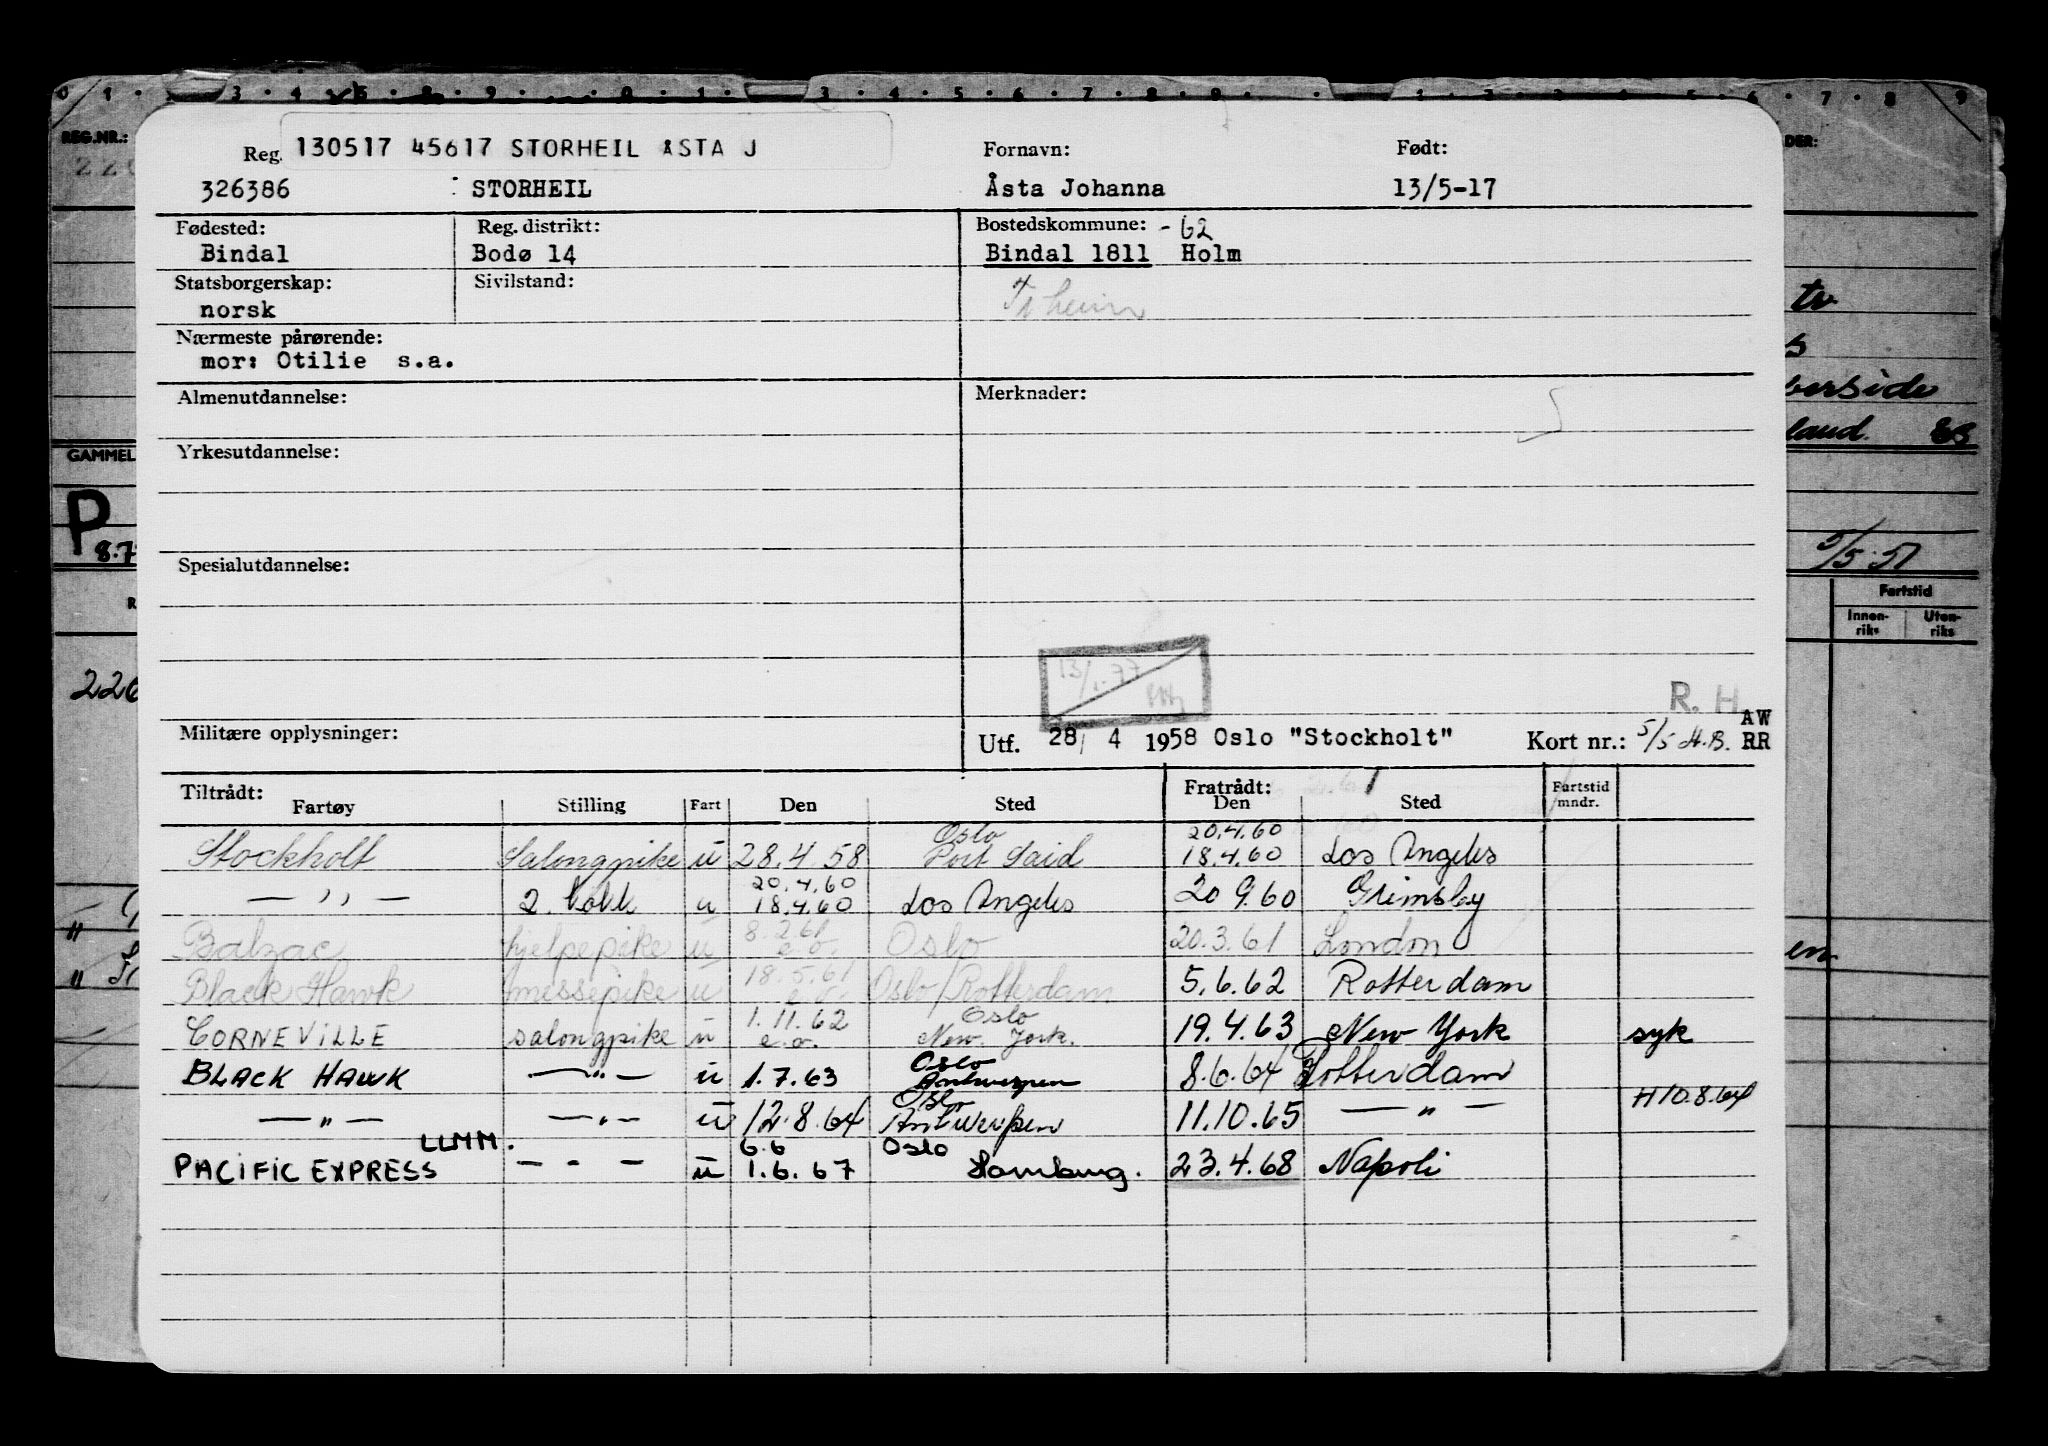 REG.NR.:
Reg. 130517 45617 STORHEIL ÅSTA J Fornavn: Født:
326386 STORHEIL Åsta Johanna 13/5-17
Fødested: Reg. distrikt: Bostedskommune: - 62
Bindal Bodø 14 Bindal 1811 Holm
Statsborgerskap: Sivilstand:
norsk
Nærmeste pårørende:
mor: Otilie s.a.
Almenutdannelse: Merknader:
Yrkesutdannelse:
GAMMEL
P
5/5-51
Spesialutdannelse:
Fartstid
Innen-riks Uten-riks
R. H.
Militære opplysninger: Utf. 28/ 4 1958 Oslo "Stockholt" Kort nr.: 5/5 H.B. AW RR
Tiltrådt: Fratrådt: Fartstid
Fartøy Stilling Fart Den Sted Den Sted mndr.
Oslo 20.4.60
Stockholt Salongpike u 28.4 58 Port Said 18.4.60 Los Angeles
20.4.60
— ,, — 2. kokk u 18.4.60 Los Angeles 20 9.60 Grimsby
8.2.61
Balzac hjelpepike u e.o. Oslo 20.3.61 London
18.5.61
Black Hawk messepike u e.o. Oslo/Rotterdam 5.6.62 Rotterdam
1.11.62 Oslo
CORNEVILLE salongpike u e.o. New York. 19.4.63 New York syk
Oslo
BLACK HAWK — " — u 1.7.63 Antwerpen 8.6.64 Rotterdam
Oslo H 10.8.64
— " — — " — u 12.8.64 Antwerpen 11.10.65 — " —
LLMM. 6.6 Oslo
PACIFIC EXPRESS — " — u 1.6.67 Hamburg. 23.4.68 Napoli